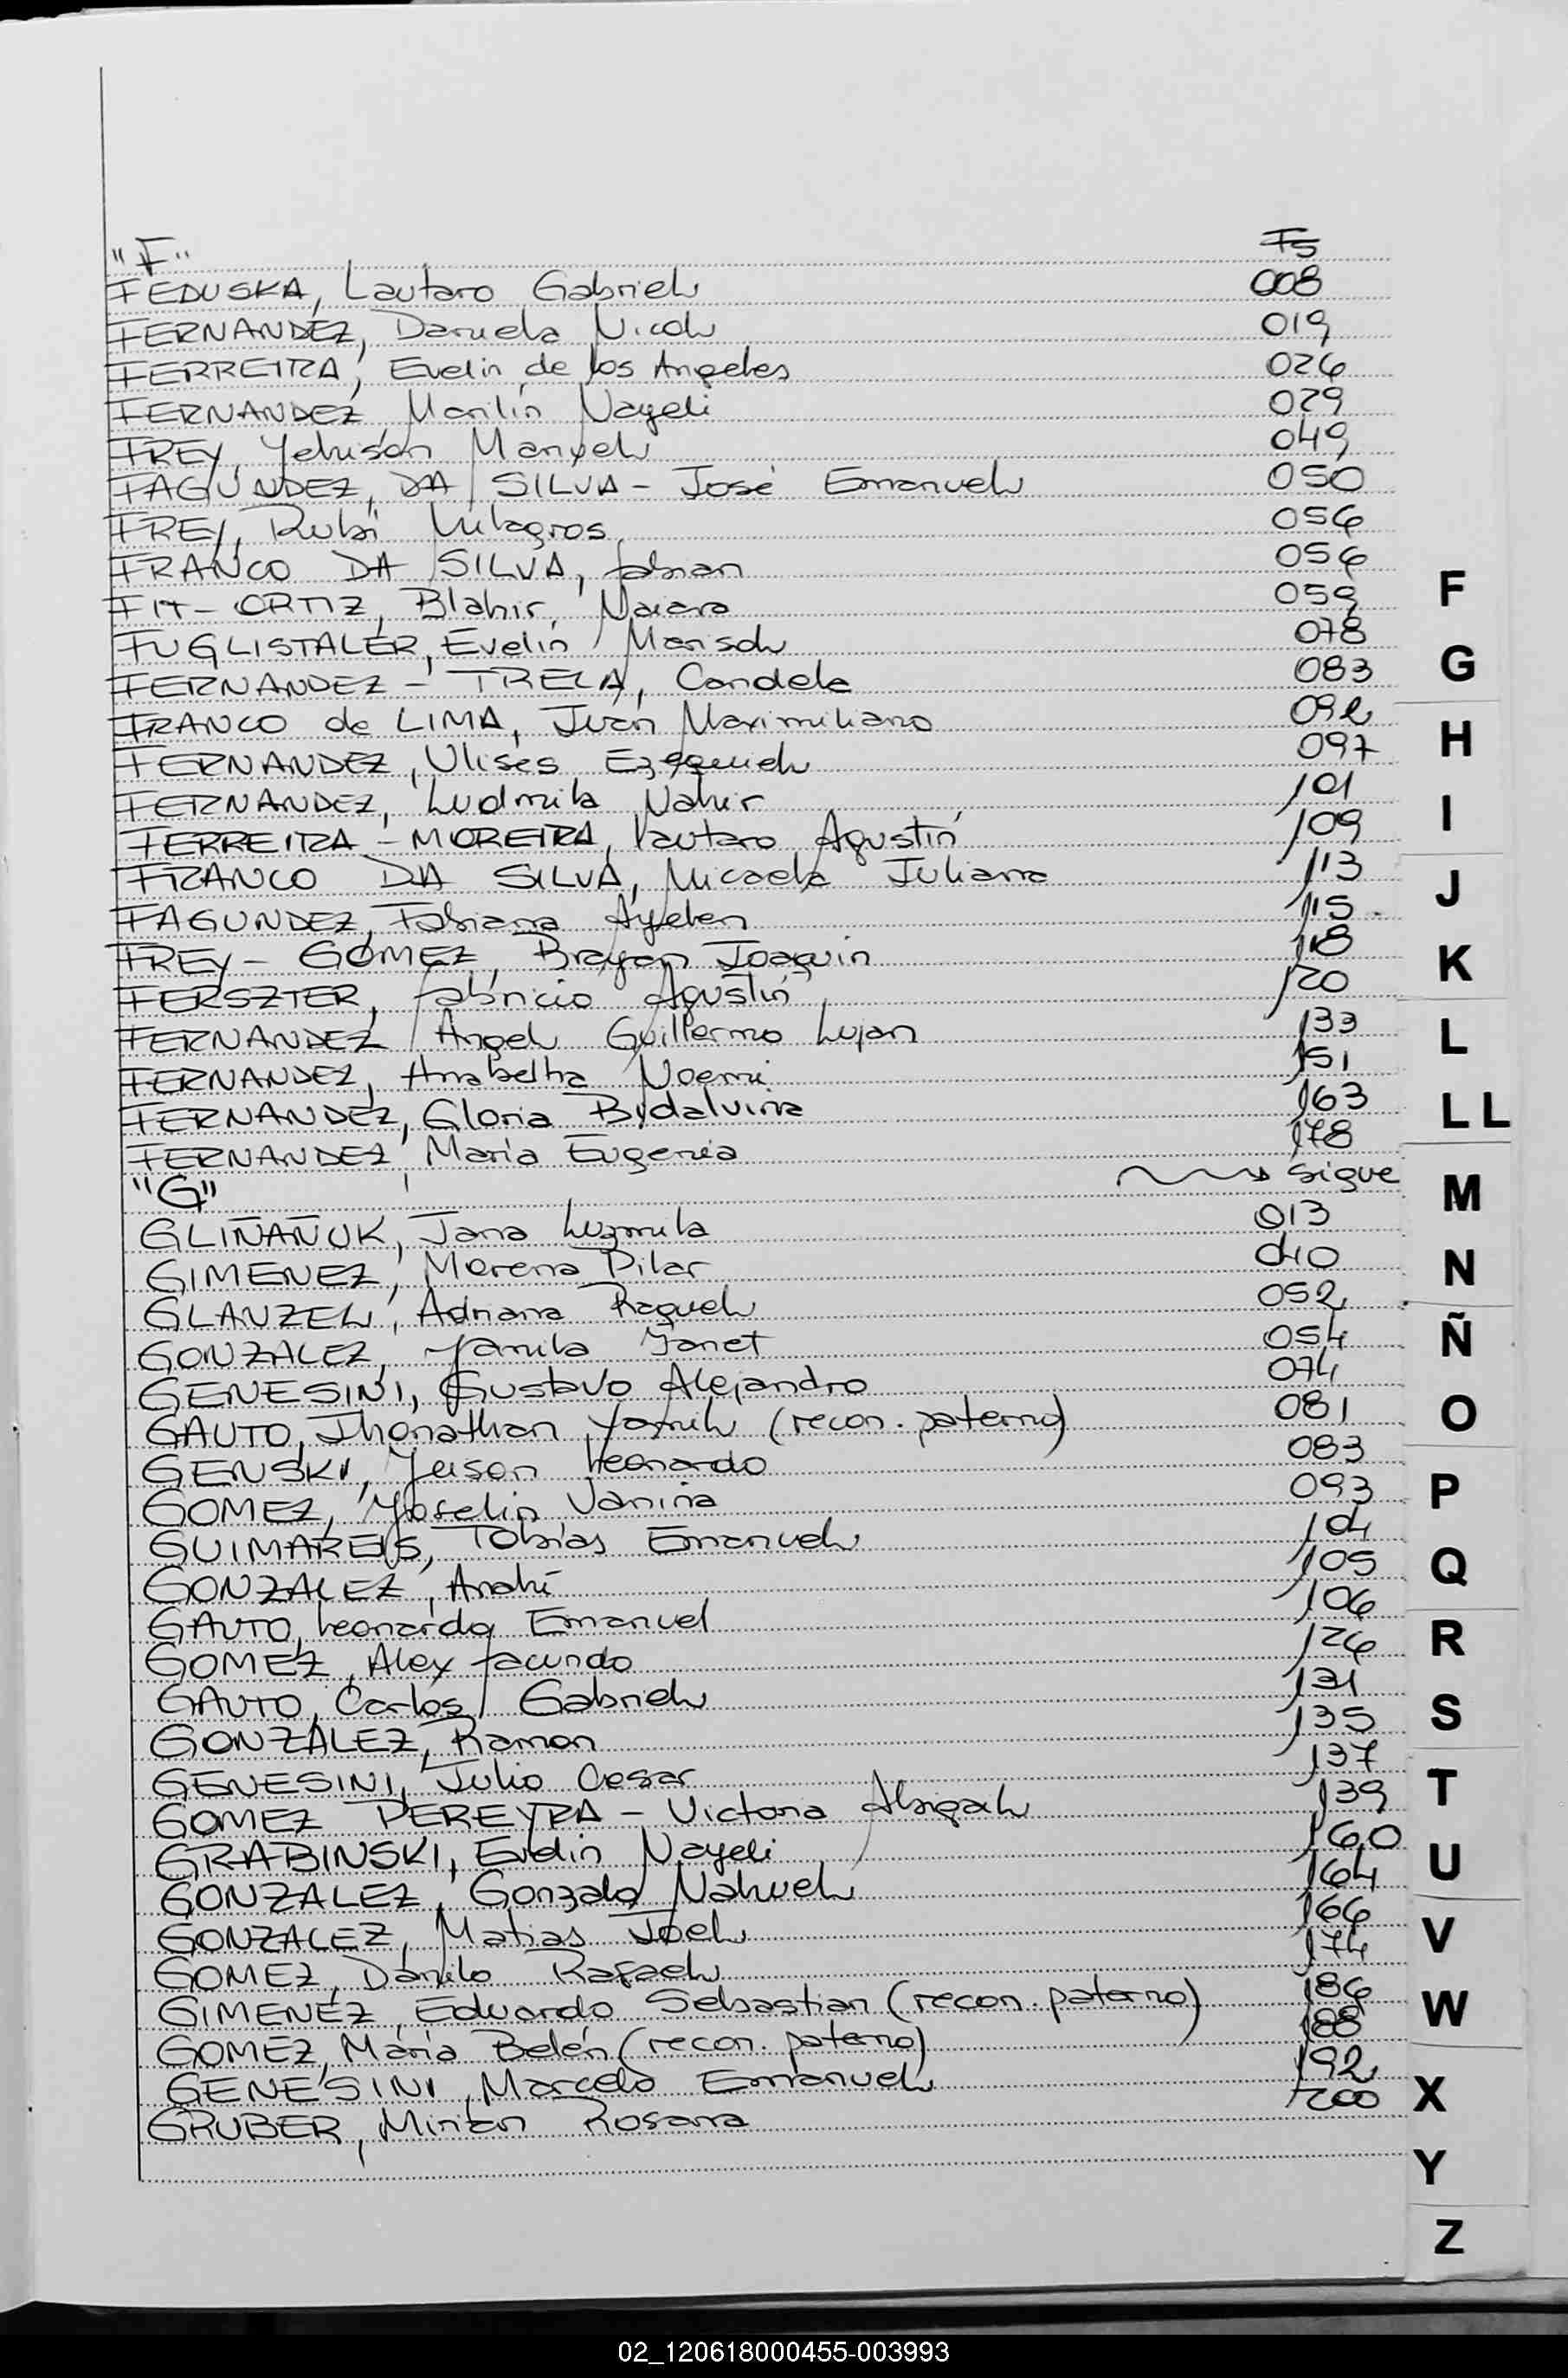 "F" Fs
FEDUSKA, Lautaro Gabriel 008
FERNANDEZ, Daniela Nicol 019
FERREIRA, Evelin de los Angeles 026
FERNANDEZ Marilin Nayeli 029
FREY, Yehison Manuel 049
FAGUNDEZ, DA SILVA - José Emanuel 050
FREY, Rubí Milagros 056
FRANCO DA SILVA, Fabian 056
FIT - ORTIZ, Blahir, Naiara 059
FUGLISTALER, Evelin Marisol 078
FERNANDEZ - TRELA, Candela 083
FRANCO de LIMA, Juan Maximiliano 092
FERNANDEZ, Ulises Ezequiel 097
FERNANDEZ, Ludmila Nahir 101
FERREIRA - MOREIRA, Lautaro Agustin 109
FRANCO DA SILVA, Micaela Juliana 113
FAGUNDEZ, Fabiana Ayelen 115
FREY - GOMEZ, Brayan Joaquin 118
FERSZTER, Fabricio Agustin 120
FERNANDEZ Angel Guillermo Lujan 133
FERNANDEZ, Anabella Noemi 151
FERNANDEZ, Gloria Bydalvina 163
FERNANDEZ Maria Eugenia 178
"G" sigue
GLIÑAÑUK, Jana Luzmila 013
GIMENEZ, Morena Pilar 040
GLANZEL, Adriana Raquel 052
GONZALEZ, Yamila Janet 054
GENESINI, Gustavo Alejandro 074
GAUTO, Jhonathan Yamil (recon. paterno) 081
GENSKI, Yeison Leonardo 083
GOMEZ, Yoselin Vanina 093
GUIMAREIS, Tobías Emanuel 104
GONZALEZ, André 105
GAUTO, Leonardo Emanuel 106
GOMEZ, Alex Facundo 126
GAUTO, Carlos Gabriel 131
GONZALEZ, Ramon 135
GENESINI, Julio Cesar 137
GOMEZ PEREYRA - Victoria Abigail 139
GRABINSKI, Evelin Nayeli 160
GONZALEZ, Gonzalo Nahuel 164
GONZALEZ, Matias Joel 166
GOMEZ, Danilo Rafael 174
GIMENEZ, Eduardo Sebastian (recon. paterno) 186
GOMEZ, Maria Belén (recon. paterno) 188
GENESINI, Marcelo Emanuel 192
GRUBER, Mirian Rosana 200
F
G
H
I
J
K
L
LL
M
N
Ñ
O
P
Q
R
S
T
U
V
W
X
Y
Z
02_120618000455-003993